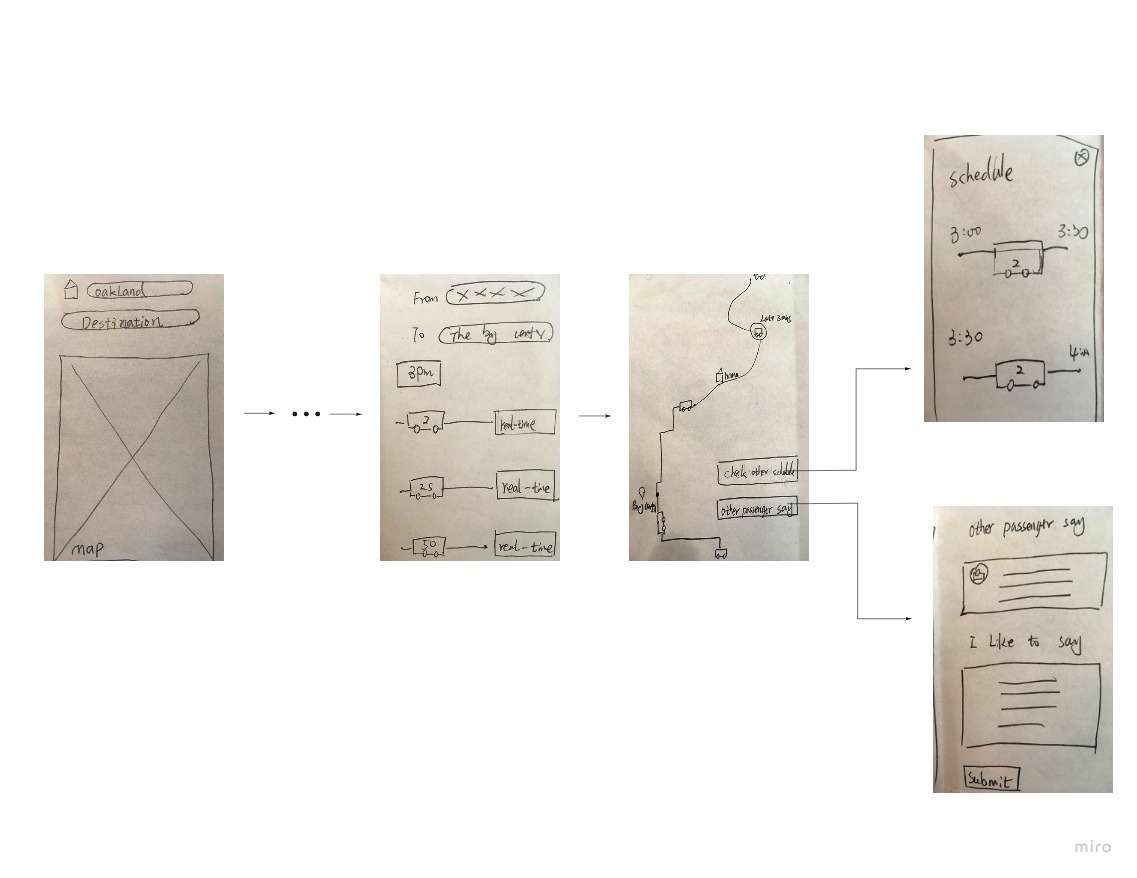 oakland
Destination
map
From XXXX
To The
3pm
2
real-time
25
real-time
50
real-time
home
check other schedule
other passenger say
schedule
3:00
3:30
2
3:30
2
other passenger say
I Like to say
Submit
miro